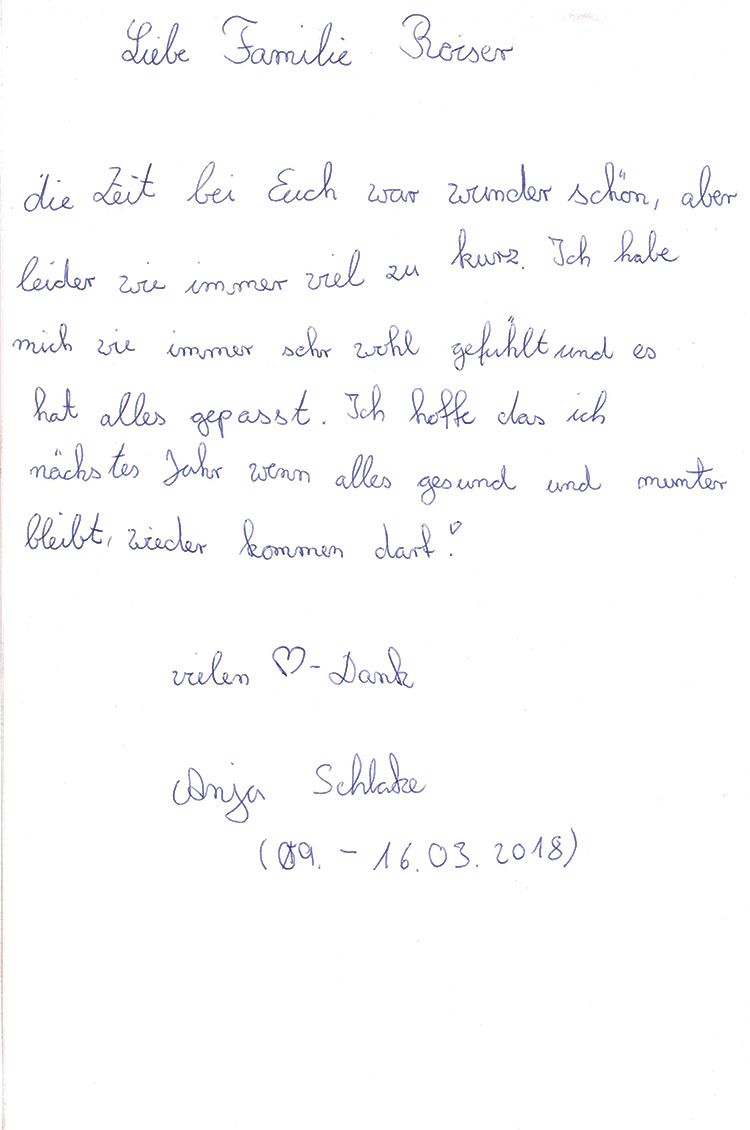 Liebe Familie Roiser
die Zeit bei Euch war wunder schön, aber
leider wie immer viel zu kurz. Ich habe
mich wie immer sehr wohl gefühlt und es
hat alles gepasst. Ich hoffe das ich
nächstes Jahr wenn alles gesund und munter
bleibt, wieder kommen darf!
vielen ♡-Dank
Anja Schlake
(09. - 16.03.2018)